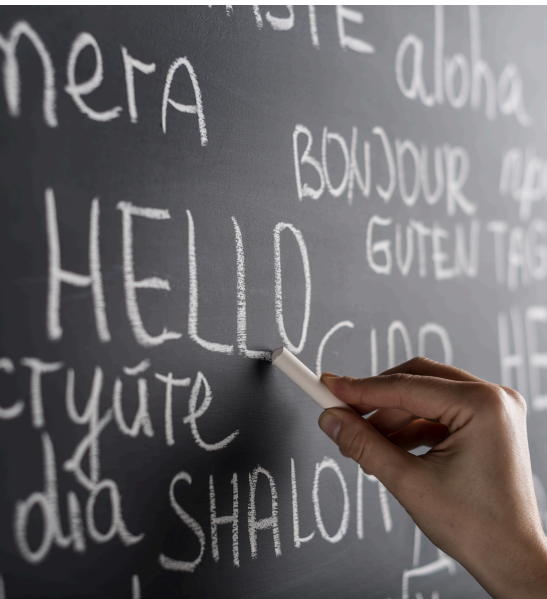 aloha
merA
BONJOUR
GUTEN TAG
HELLO
CIAO
HE
ствуйте
dia
SHALOM